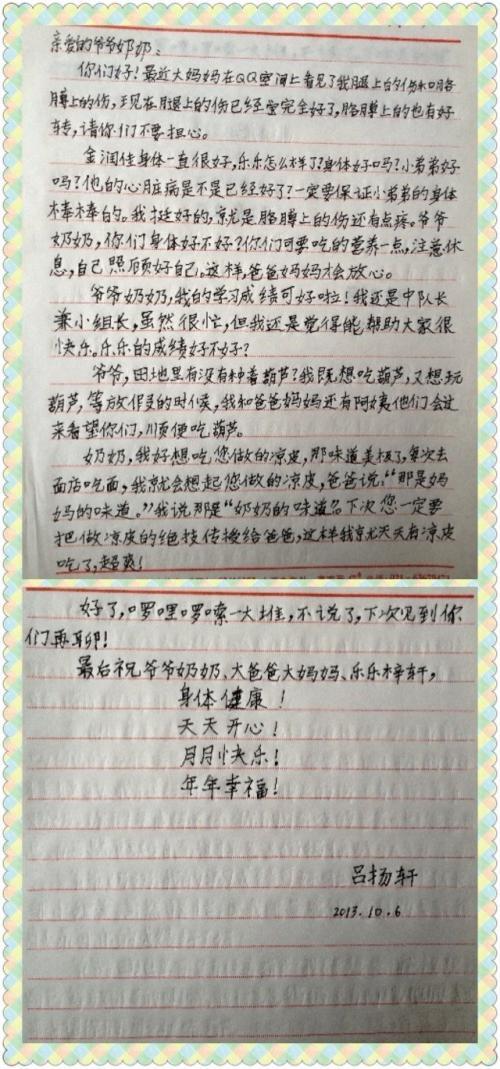 亲爱的爷爷奶奶：
你们好！最近大妈妈在QQ空间上看见了我腿上的伤和胳
膊上的伤，现在腿上的伤已经完全好了，胳膊上的也有好
转，请你们不要担心。
金润佳身体一直很好，乐乐怎么样了？身体好吗？小弟弟好
吗？他的心脏病是不是已经好了？一定要保证小弟弟的身体
棒棒的。我挺好的，就是胳膊上的伤还有点疼。爷爷
奶奶，你们身体好不好？你们可要吃的营养一点，注意休
息，自己照顾好自己。这样，爸爸妈妈才会放心。
爷爷奶奶，我的学习成绩可好啦！我还是中队长
兼小组长，虽然很忙，但我还是觉得能帮助大家很
快乐。乐乐的成绩好不好？
爷爷，田地里有没有种着葫芦？我既想吃葫芦，又想玩
葫芦，等放假的时候，我和爸爸妈妈还有阿姨他们会过
来看望你们，顺便吃葫芦。
奶奶，我好想吃您做的凉皮，那味道美极了，每次去
面店吃面，我就会想起您做的凉皮，爸爸说：“那是妈
妈的味道。”我说那是“奶奶的味道”。下次您一定要
把做凉皮的绝技传授给爸爸，这样我就天天有凉皮
吃了，超爽！
好了，啰哩啰嗦一大堆，不说了，下次见到你
们再聊！
最后祝爷爷奶奶、大爸爸大妈妈、乐乐梓轩，
身体健康！
天天开心！
月月快乐！
年年幸福！
吕扬轩
2013.10.6